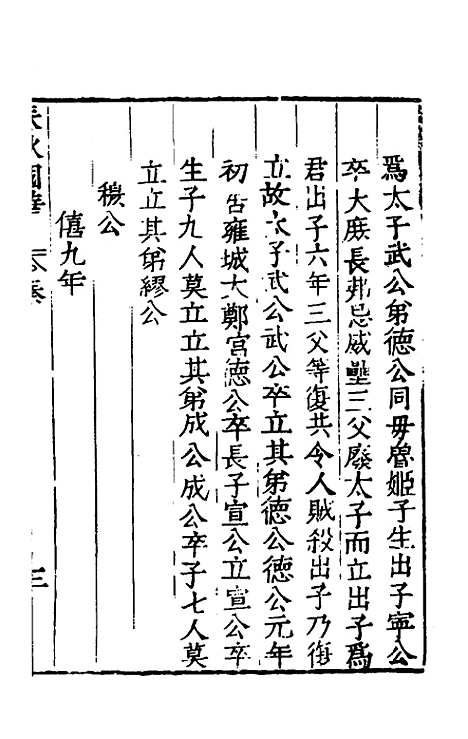 爲太子武公弟德公同毋魯姬子生出子寧公
卒大庻長弗忌威壘三父廢太子而立出子爲
君出子六年三父等復共令人賊殺出子乃復
立故太子武公武公卒立其弟德公德公元年
初居雍城大鄭宮德公卒長子宣公立宣公卒
生子九人莫立立其弟成公成公卒子七人莫
立立其弟繆公
穆公
僖九年
春秋國華
秦
三